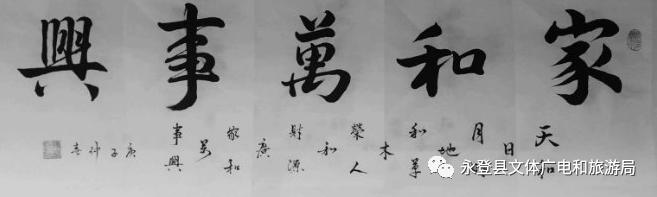 家和萬事興
天和
日
月明
地
和草
木
榮人
和
財源
廣
家和
万
事興
庚子仲春
永登县文体广电和旅游局